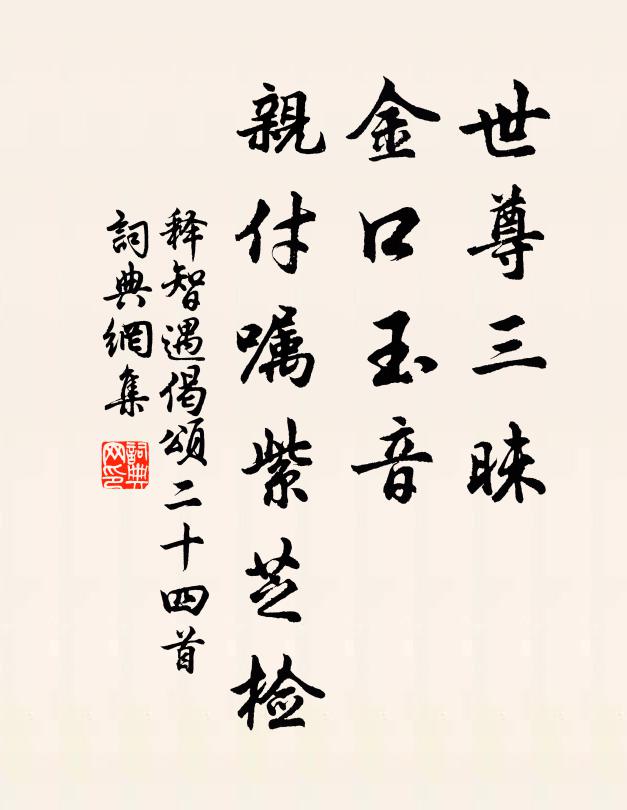 世尊三昧
金口玉音
親付嘱紫芝检
释智遇偈頌二十四首
詞典網集
詞典網印